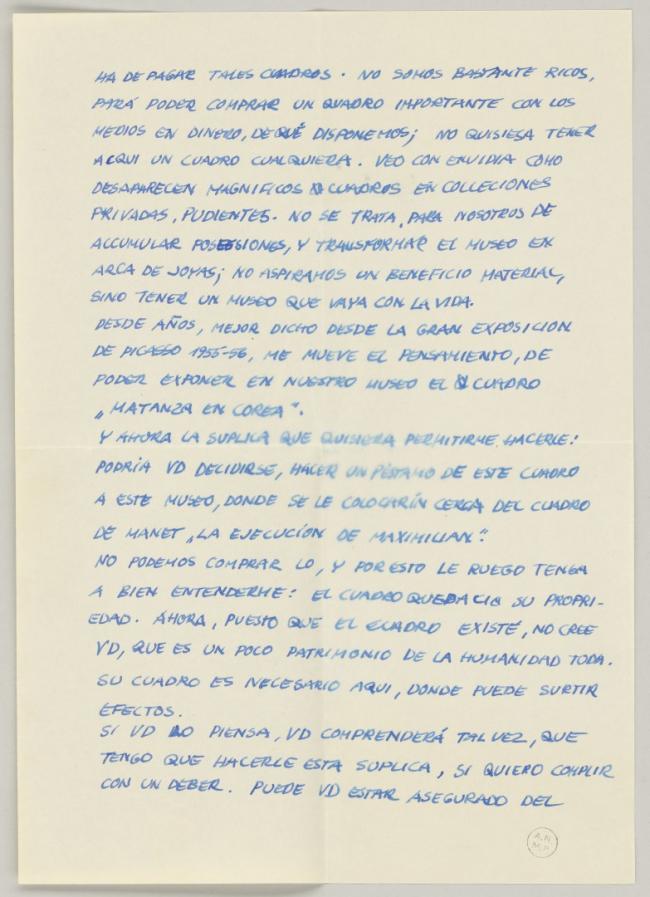 HA DE PAGAR TALES CUADROS. NO SOMOS BASTANTE RICOS,
PARÁ PODER COMPRAR UN QUADRO IMPORTANTE CON LOS
MEDIOS EN DINERO, DE QUÉ DISPONEMOS; NO QUISIESA TENER
ACQUI UN CUADRO CUALQUIERA. VEO CON ENVIDIA COMO
DESAPARECEN MAGNIFICOS CUADROS EN COLLECIONES
PRIVADAS, PUDIENTES. NO SE TRATA, PARA NOSOTROS DE
ACCUMULAR POSESSIONES, Y TRANSFORMAR EL MUSEO EN
ARCA DE JOYAS; NO ASPIRAMOS UN BENEFICIO MATERIAL,
SINO TENER UN MUSEO QUE VAYA CON LA VIDA.
DESDE AÑOS, MEJOR DICHO DESDE LA GRAN EXPOSICION
DE PICASSO 1955-56, ME MUEVE EL PENSAMIENTO, DE
PODER EXPONER EN NUESTRO MUSEO EL CUADRO
„MATANZA EN COREA".
Y AHORA LA SUPLICA QUE QUISIERA PERMITIRME HACERLE:
PODRÍA VD DECIDIRSE, HACER UN PÉSTAMO DE ESTE CUADRO
A ESTE MUSEO, DONDE SE LE COLOCARÍN CERCA DEL CUADRO
DE MANET „LA EJECUCION DE MAXIMILIAN".
NO PODEMOS COMPRAR LO, Y POR ESTO LE RUEGO TENGA
A BIEN ENTENDERME: EL CUADRO SU PROPRI-
EDAD. AHORA, PUESTO QUE EL CUADRO EXISTE, NO CREE
VD, QUE ES UN POCO PATRIMONIO DE LA HUMANIDAD TODA.
SU CUADRO ES NECESARIO AQUI, DONDE PUEDE SURTIR
EFECTOS.
SI VD LO PIENSA, VD COMPRENDERÁ TAL VEZ, QUE
TENGO QUE HACERLE ESTA SUPLICA, SI QUIERO COMPLIR
CON UN DEBER. PUEDE VD ESTAR ASEGURADO DEL
A.N.
M.P.